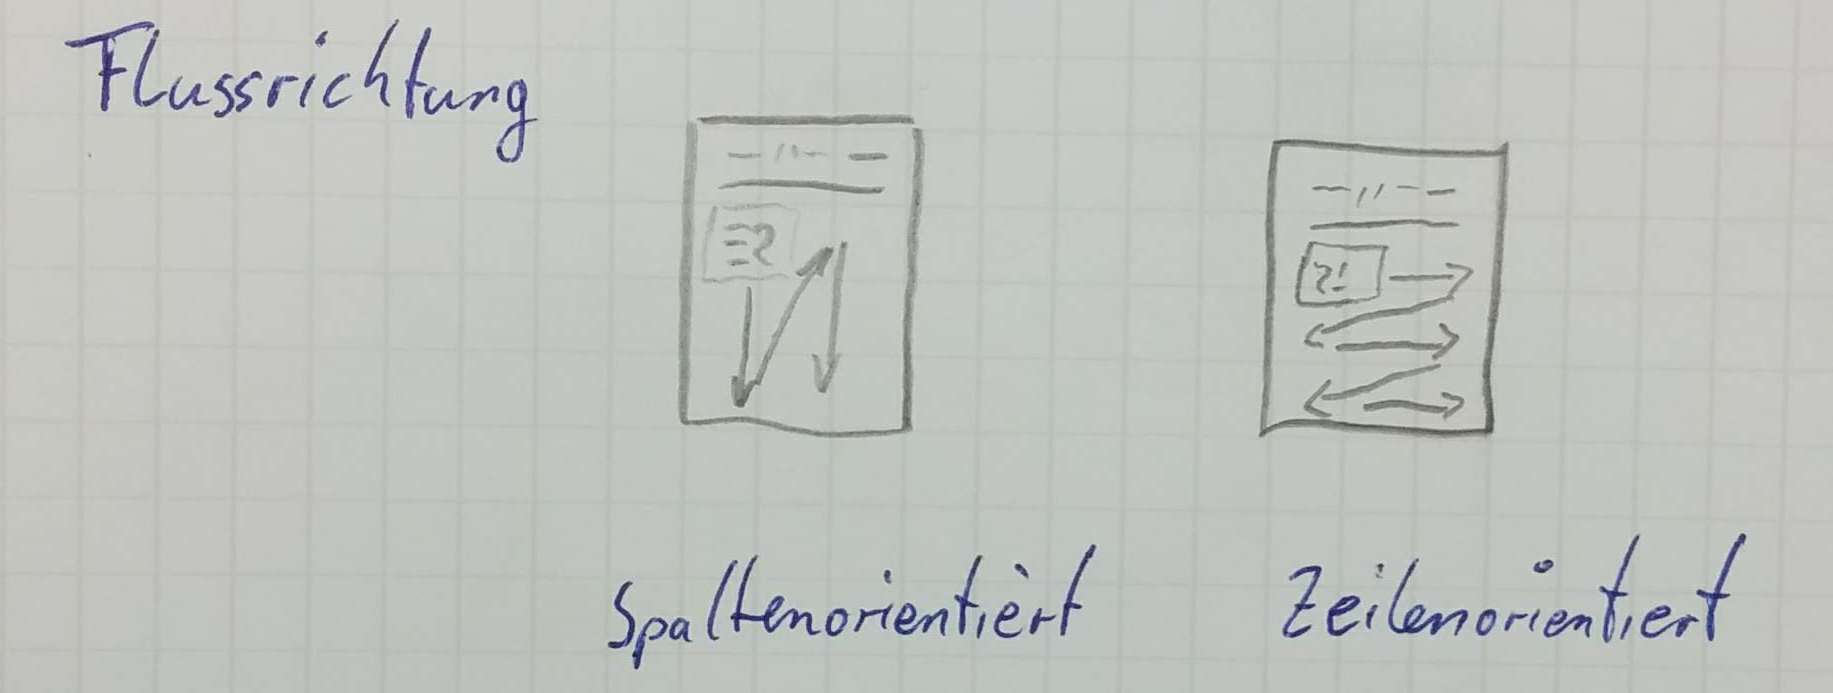 Flussrichtung
Spaltenorientiert
Zeilenorientiert